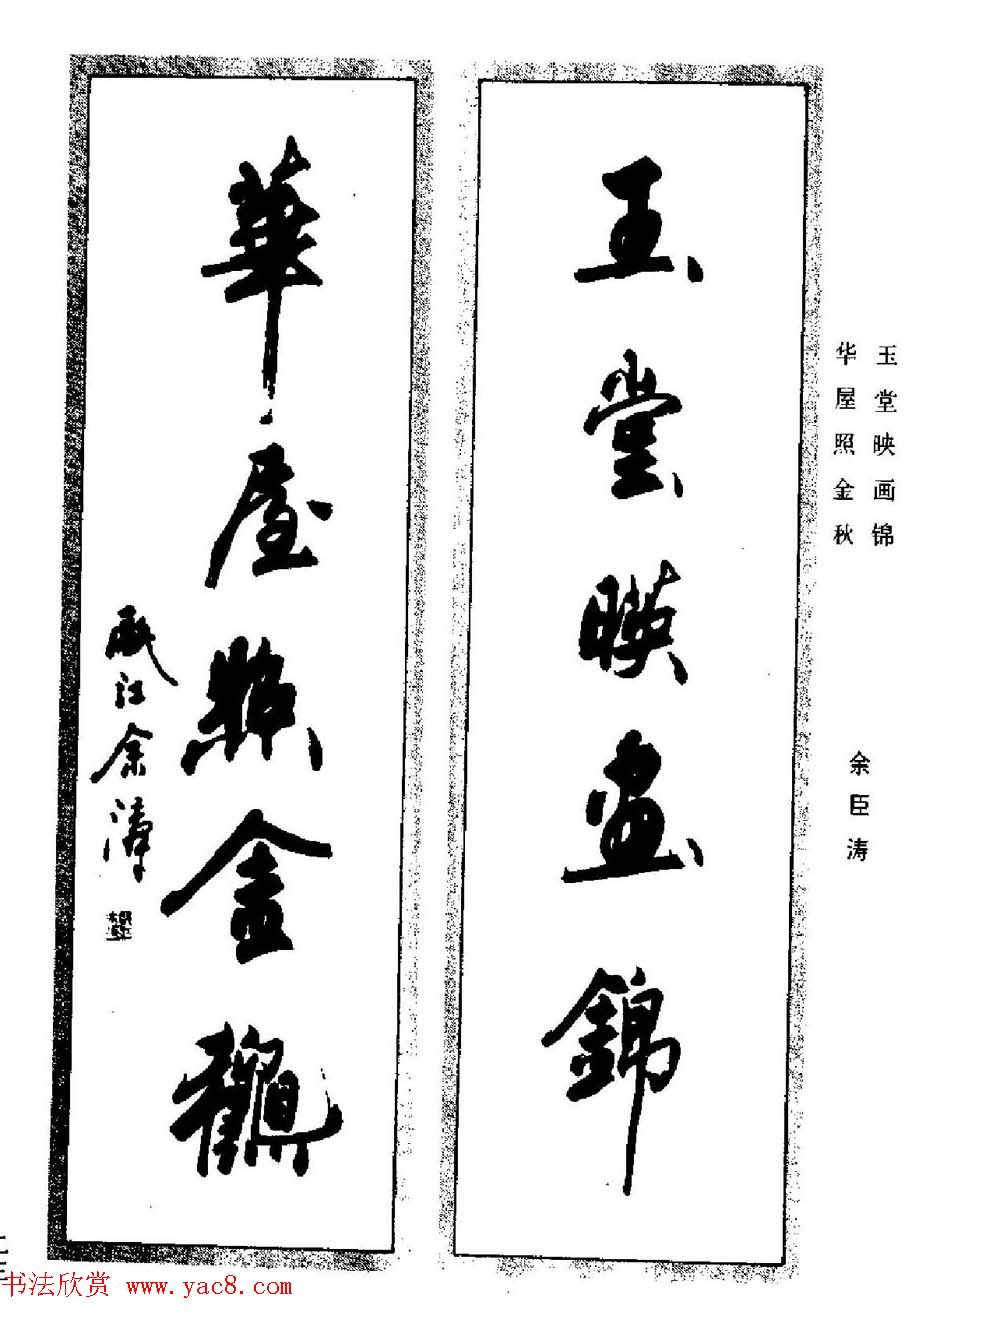 玉堂映画锦
华屋照金秋
余臣涛
玉堂暎畫錦
華屋照金龝
江余
书法欣赏 www.yac8.com